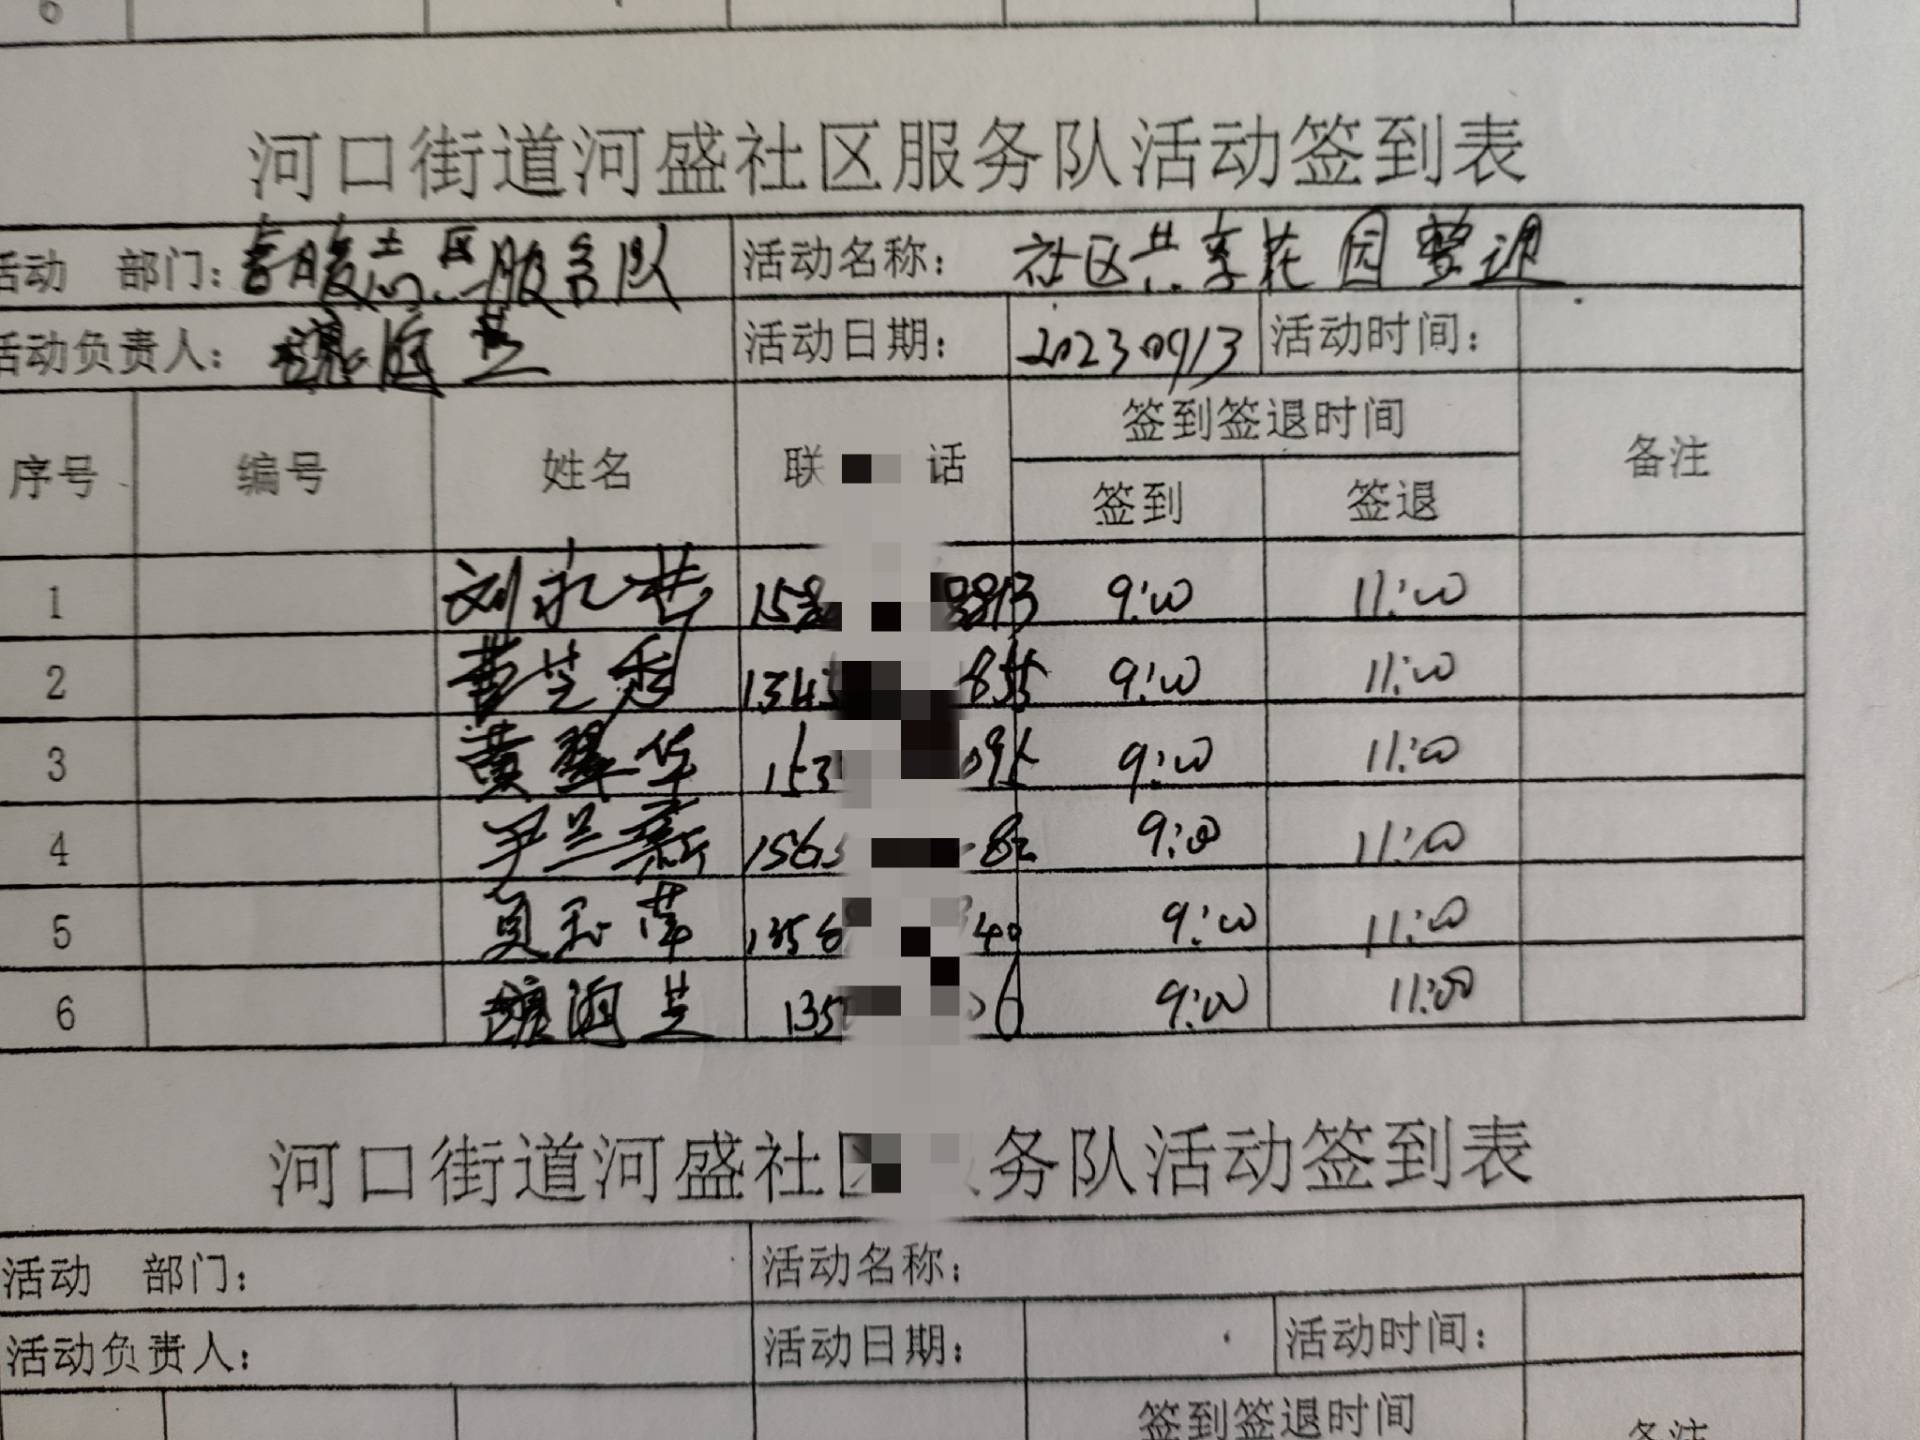 6
河口街道河盛社区服务队活动签到表
活动 部门： 服务队 活动名称： 社区共享花园整理
活动负责人： 活动日期： 20230913 活动时间：
序号 编号 姓名 联 话 签到签退时间 备注
签到 签退
1 刘永 158 8813 9:00 11:00
2 芝秀 1343 855 9:00 11:00
3 黄翠华 153 095 9:00 11:00
4 尹兰新 1565 82 9:00 11:00
5 玉萍 1356 340 9:00 11:00
6 海芝 135 06 9:00 11:00
河口街道河盛社区 务队活动签到表
活动 部门： 活动名称：
活动负责人： 活动日期： 活动时间：
签到签退时间 备注